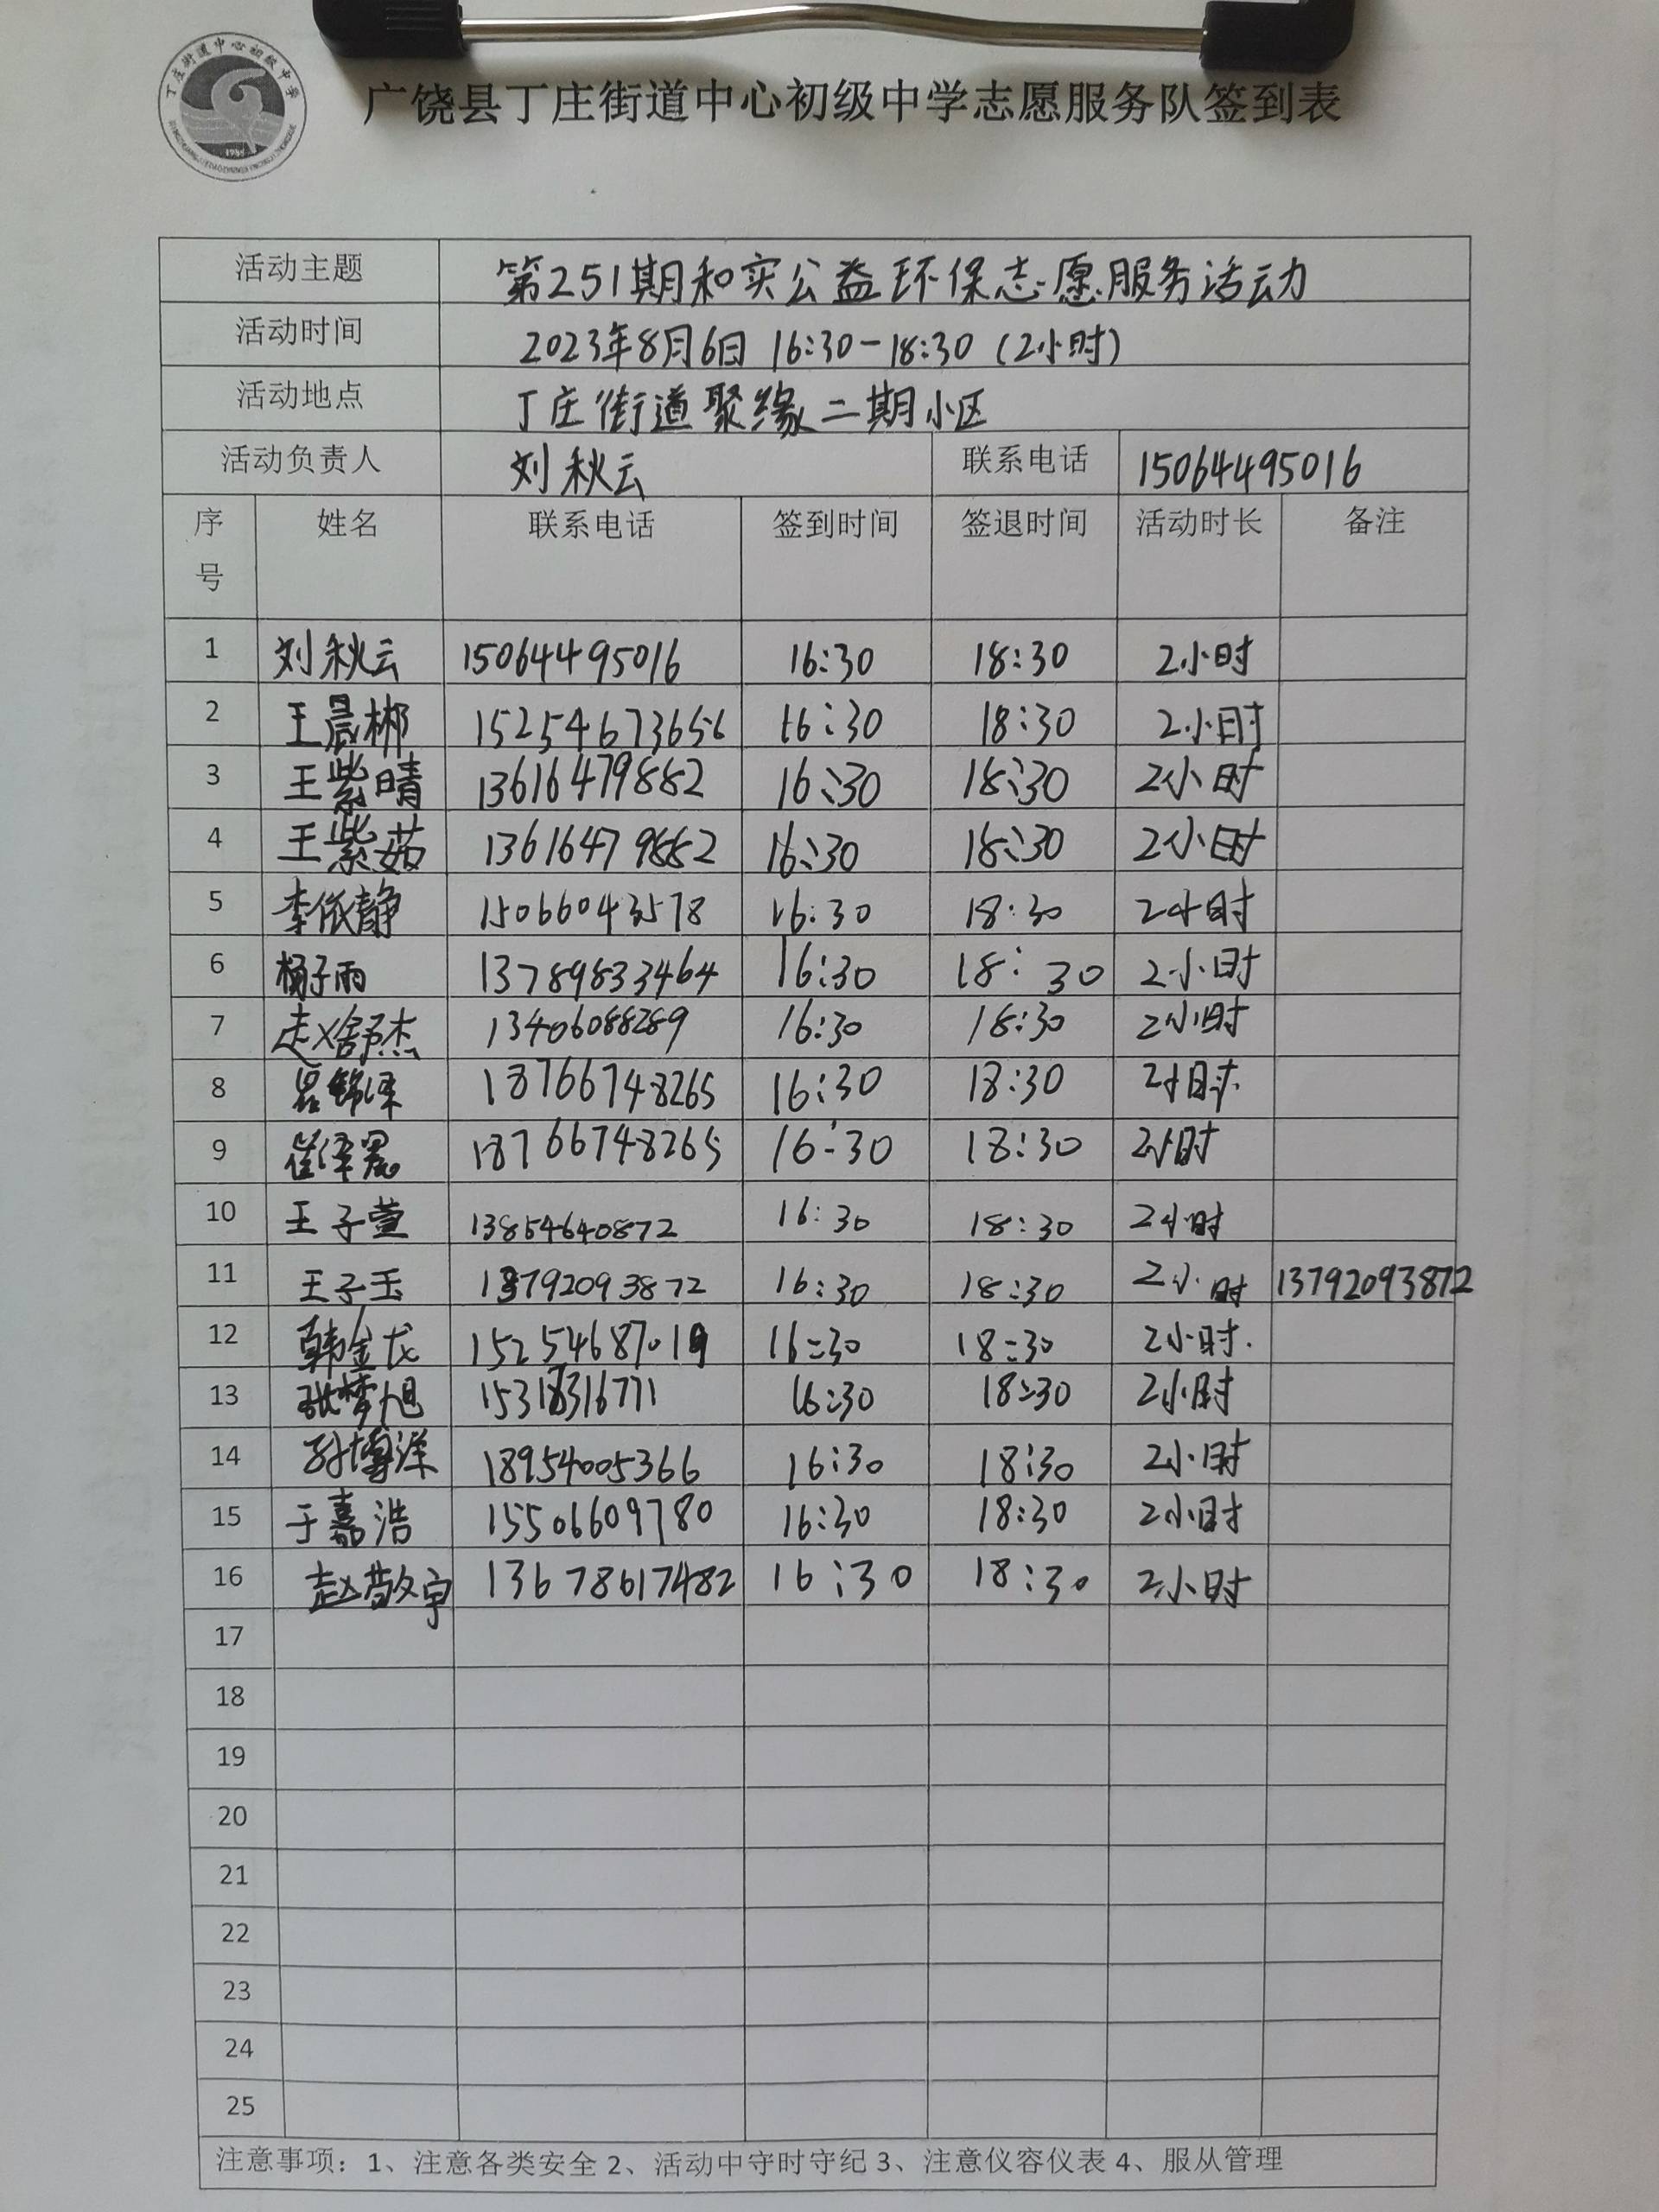 丁庄街道中心初级中学
1985
广饶县丁庄街道中心初级中学志愿服务队签到表
活动主题 第251期和实公益环保志愿服务活动
活动时间 2023年8月6日 16:30-18:30 (2小时)
活动地点 丁庄街道聚缘二期小区
活动负责人 刘秋云 联系电话 15064495016
序号 姓名 联系电话 签到时间 签退时间 活动时长 备注
1 刘秋云 15064495016 16:30 18:30 2小时
2 王晨郴 15254673656 16:30 18:30 2小时
3 王紫晴 13616479882 16:30 18:30 2小时
4 王紫茹 13616479882 16:30 18:30 2小时
5 李依静 15066043578 16:30 18:30 2小时
6 杨子雨 13789833464 16:30 18:30 2小时
7 赵舒杰 13406088289 16:30 18:30 2小时
8 18766748265 16:30 18:30 2小时
9 崔泽晨 18766748265 16:30 18:30 2小时
10 王子萱 13854640872 16:30 18:30 2小时
11 王子玉 13792093872 16:30 18:30 2小时 13792093872
12 韩金龙 15254687019 16:30 18:30 2小时.
13 张梦旭 15318316771 16:30 18:30 2小时
14 孙博洋 18954005366 16:30 18:30 2小时
15 于嘉浩 15506609780 16:30 18:30 2小时
16 赵敬宇 13678617482 16:30 18:30 2小时
17
18
19
20
21
22
23
24
25
注意事项：1、注意各类安全 2、活动中守时守纪 3、注意仪容仪表 4、服从管理